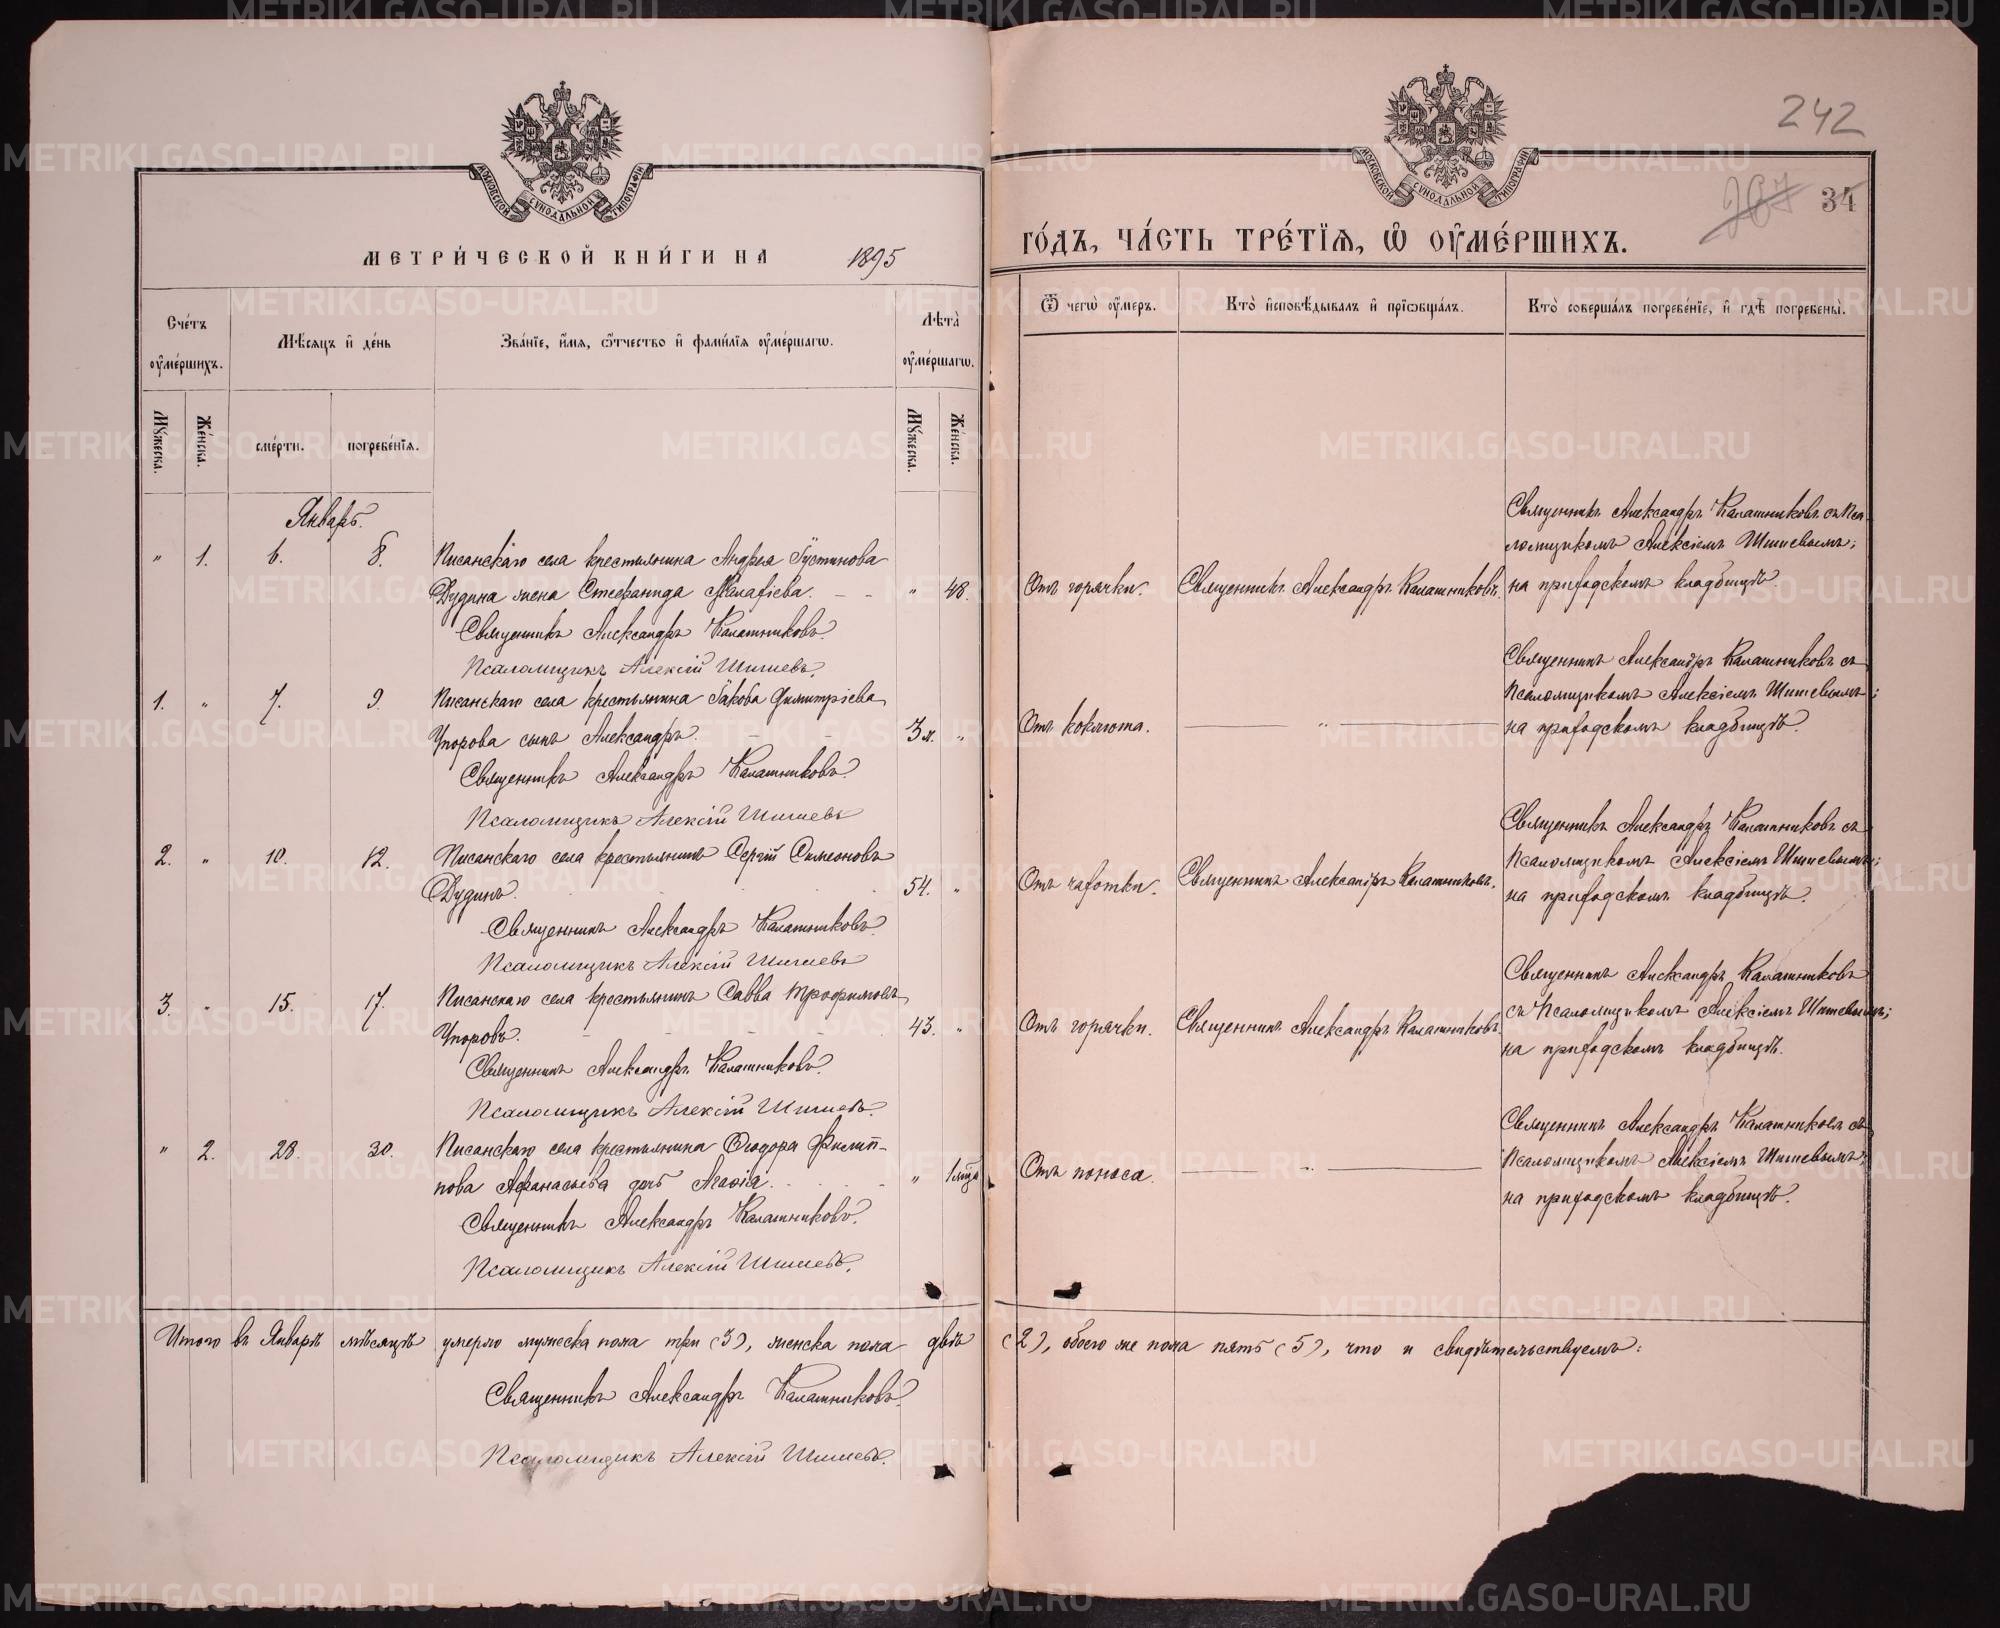 242
34
МОСКОВСКОЙ СѴНОДАЛЬНОЙ ТИПОГРАФІИ
МОСКОВСКОЙ СѴНОДАЛЬНОЙ ТИПОГРАФІИ
МЕТРИ́ЧЕСКОЙ КНИ́ГИ НА 1895 ГО́ДЪ, ЧА́СТЬ ТРЕ́ТІЯ, Ѡ ОУ҆МЕ́РШИХЪ.
Сче́тъ оу҆ме́ршихъ.
Мѣ́сяцъ и҆ де́нь
Зва́нїе, и҆́мя, ѻ҆́тчество и҆ фами́лїя оу҆ме́ршагѡ.
Лѣ́та̀ оу҆ме́ршагѡ.
Ѿ чегѡ̀ оу҆́меръ.
Кто̀ и҆сповѣ́дывалъ и҆ прїѡбща́лъ.
Кто̀ соверша́лъ погребе́нїе, и҆ гдѣ̀ погребены̀.
Му́жеска. Же́нска. сме́рти. погребе́нїя. Му́жеска. Же́нска.
Январь.
" 1. 6. 8. Писанскаго села крестьянина Андрея Густинова
Дудина жена Стефанида Малафіева. - - " 48.
Священникъ Александръ Калашниковъ.
Псаломщикъ Алексій Шишевъ.
Отъ горячки. Священникъ Александръ Калашниковъ.
Священникъ Александръ Калашниковъ съ Пса-
ломщикомъ Алексіемъ Шишевымъ;
на приходскомъ кладбищѣ.
1. " 7. 9. Писанскаго села крестьянина Іакова Димитріева
Упорова сынъ Александръ. - - 3 м. "
Священникъ Александръ Калашниковъ.
Псаломщикъ Алексій Шишевъ
Отъ коклюша. — " —
Священникъ Александръ Калашниковъ съ
Псаломщикомъ Алексіемъ Шишевымъ;
на приходскомъ кладбищѣ.
2. " 10. 12. Писанскаго села крестьянинъ Сергій Симеоновъ
Дудинъ. 54. "
Священникъ Александръ Калашниковъ.
Псаломщикъ Алексій Шишевъ
Отъ чахотки. Священникъ Александръ Калашниковъ.
Священникъ Александръ Калашниковъ съ
Псаломщикомъ Алексіемъ Шишевымъ;
на приходскомъ кладбищѣ.
3. " 15. 17. Писанскаго села крестьянинъ Савва Трофимовъ
Упоровъ. 43. "
Священникъ Александръ Калашниковъ.
Псаломщикъ Алексій Шишевъ.
Отъ горячки. Священникъ Александръ Калашниковъ.
Священникъ Александръ Калашниковъ
съ Псаломщикомъ Алексіемъ Шишевымъ;
на приходскомъ кладбищѣ.
" 2. 28. 30. Писанскаго села крестьянина Ѳеодора Филип-
пова Аѳанасьева дочь Агаѳія. " 1 мѣс.
Священникъ Александръ Калашниковъ.
Псаломщикъ Алексій Шишевъ.
Отъ поноса. — " —
Священникъ Александръ Калашниковъ съ
Псаломщикомъ Алексіемъ Шишевымъ;
на приходскомъ кладбищѣ.
Итого въ Январѣ мѣсяцѣ умерло мужеска пола три (3), женска пола двѣ (2), обоего же пола пять (5), что и свидѣтельствуемъ:
Священникъ Александръ Калашниковъ.
Псаломщикъ Алексій Шишевъ.
METRIKI.GASO-URAL.RU